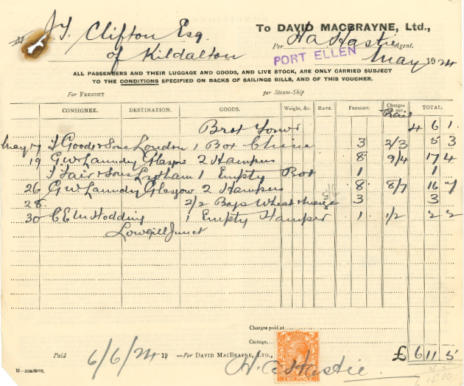 J. T. Clifton Esq To DAVID MACBRAYNE, Ltd.,
of Kildalton Per H. A. Hastie Agent.
PORT ELLEN May 1924
ALL PASSENGERS AND THEIR LUGGAGE AND GOODS, AND LIVE STOCK, ARE ONLY CARRIED SUBJECT
TO THE CONDITIONS SPECIFIED ON BACKS OF SAILINGS BILLS, AND OF THIS VOUCHER.
FOR FREIGHT per Steam-Ship
CONSIGNEE. DESTINATION. GOODS. Weight, &c. RATE. FREIGHT. Charges Paid TOTAL.
Brot Forwd 4 6 1
May 17 T Goode & Sons London 1 Box China 3 2/3 5 3
19 G W Laundry Glasgow 2 Hampers 8 9/4 17 4
T Fair & Sons Lytham 1 Empty Box 1 1
26 G W Laundry Glasgow 2 Hampers 8 8/7 16 7
28 2/2 Bags Wheat & 3 3
30 C E M 1 Empty Hamper 1 1/2 2 2
Lowgill Junct
Charges paid at
Cartage,
£ 6 11 5
Paid 6/6/24 19 —For DAVID MACBRAYNE, LTD., H. A. Hastie